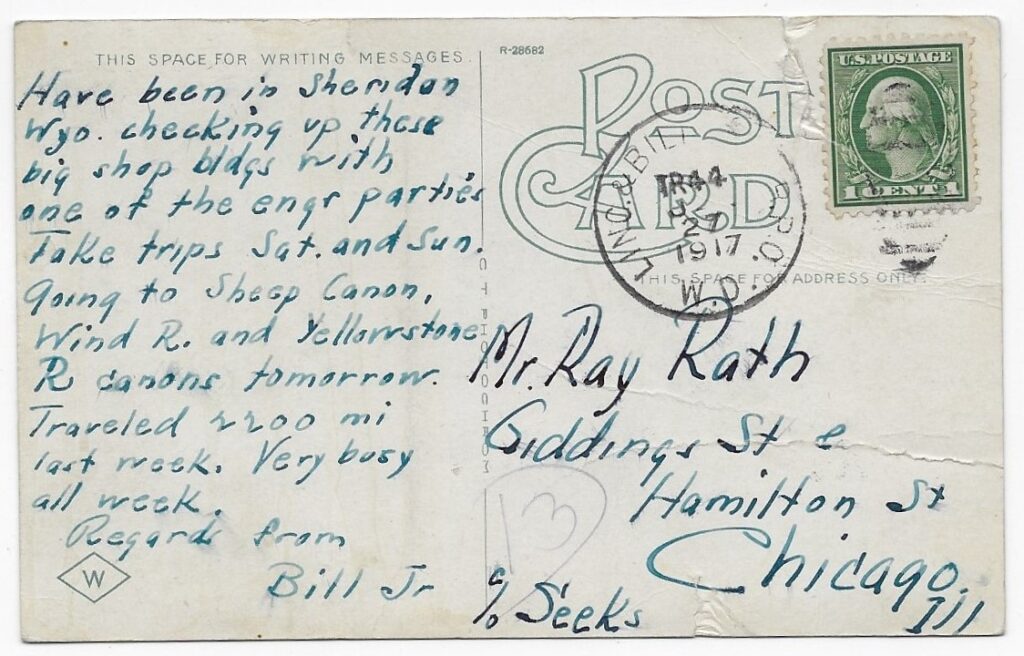 THIS SPACE FOR WRITING MESSAGES.
Have been in Sheridan
Wyo. checking up these
big shop bldgs with
one of the engr parties
Take trips Sat. and Sun.
Going to Sheep Canon,
Wind R. and Yellowstone
R canons tomorrow.
Traveled 2200 mi
last week. Very busy
all week.
Regards from
Bill Jr
W
R-28682
POST
CARD
U.S. POSTAGE
1 CENT 1
LINC. & BILL R.P.O.
TR 44
27
1917
W.D.
THIS SPACE FOR ADDRESS ONLY.
Mr. Ray Rath
Giddings St &
Hamilton St
Chicago.
Ill
c/o Seeks
13